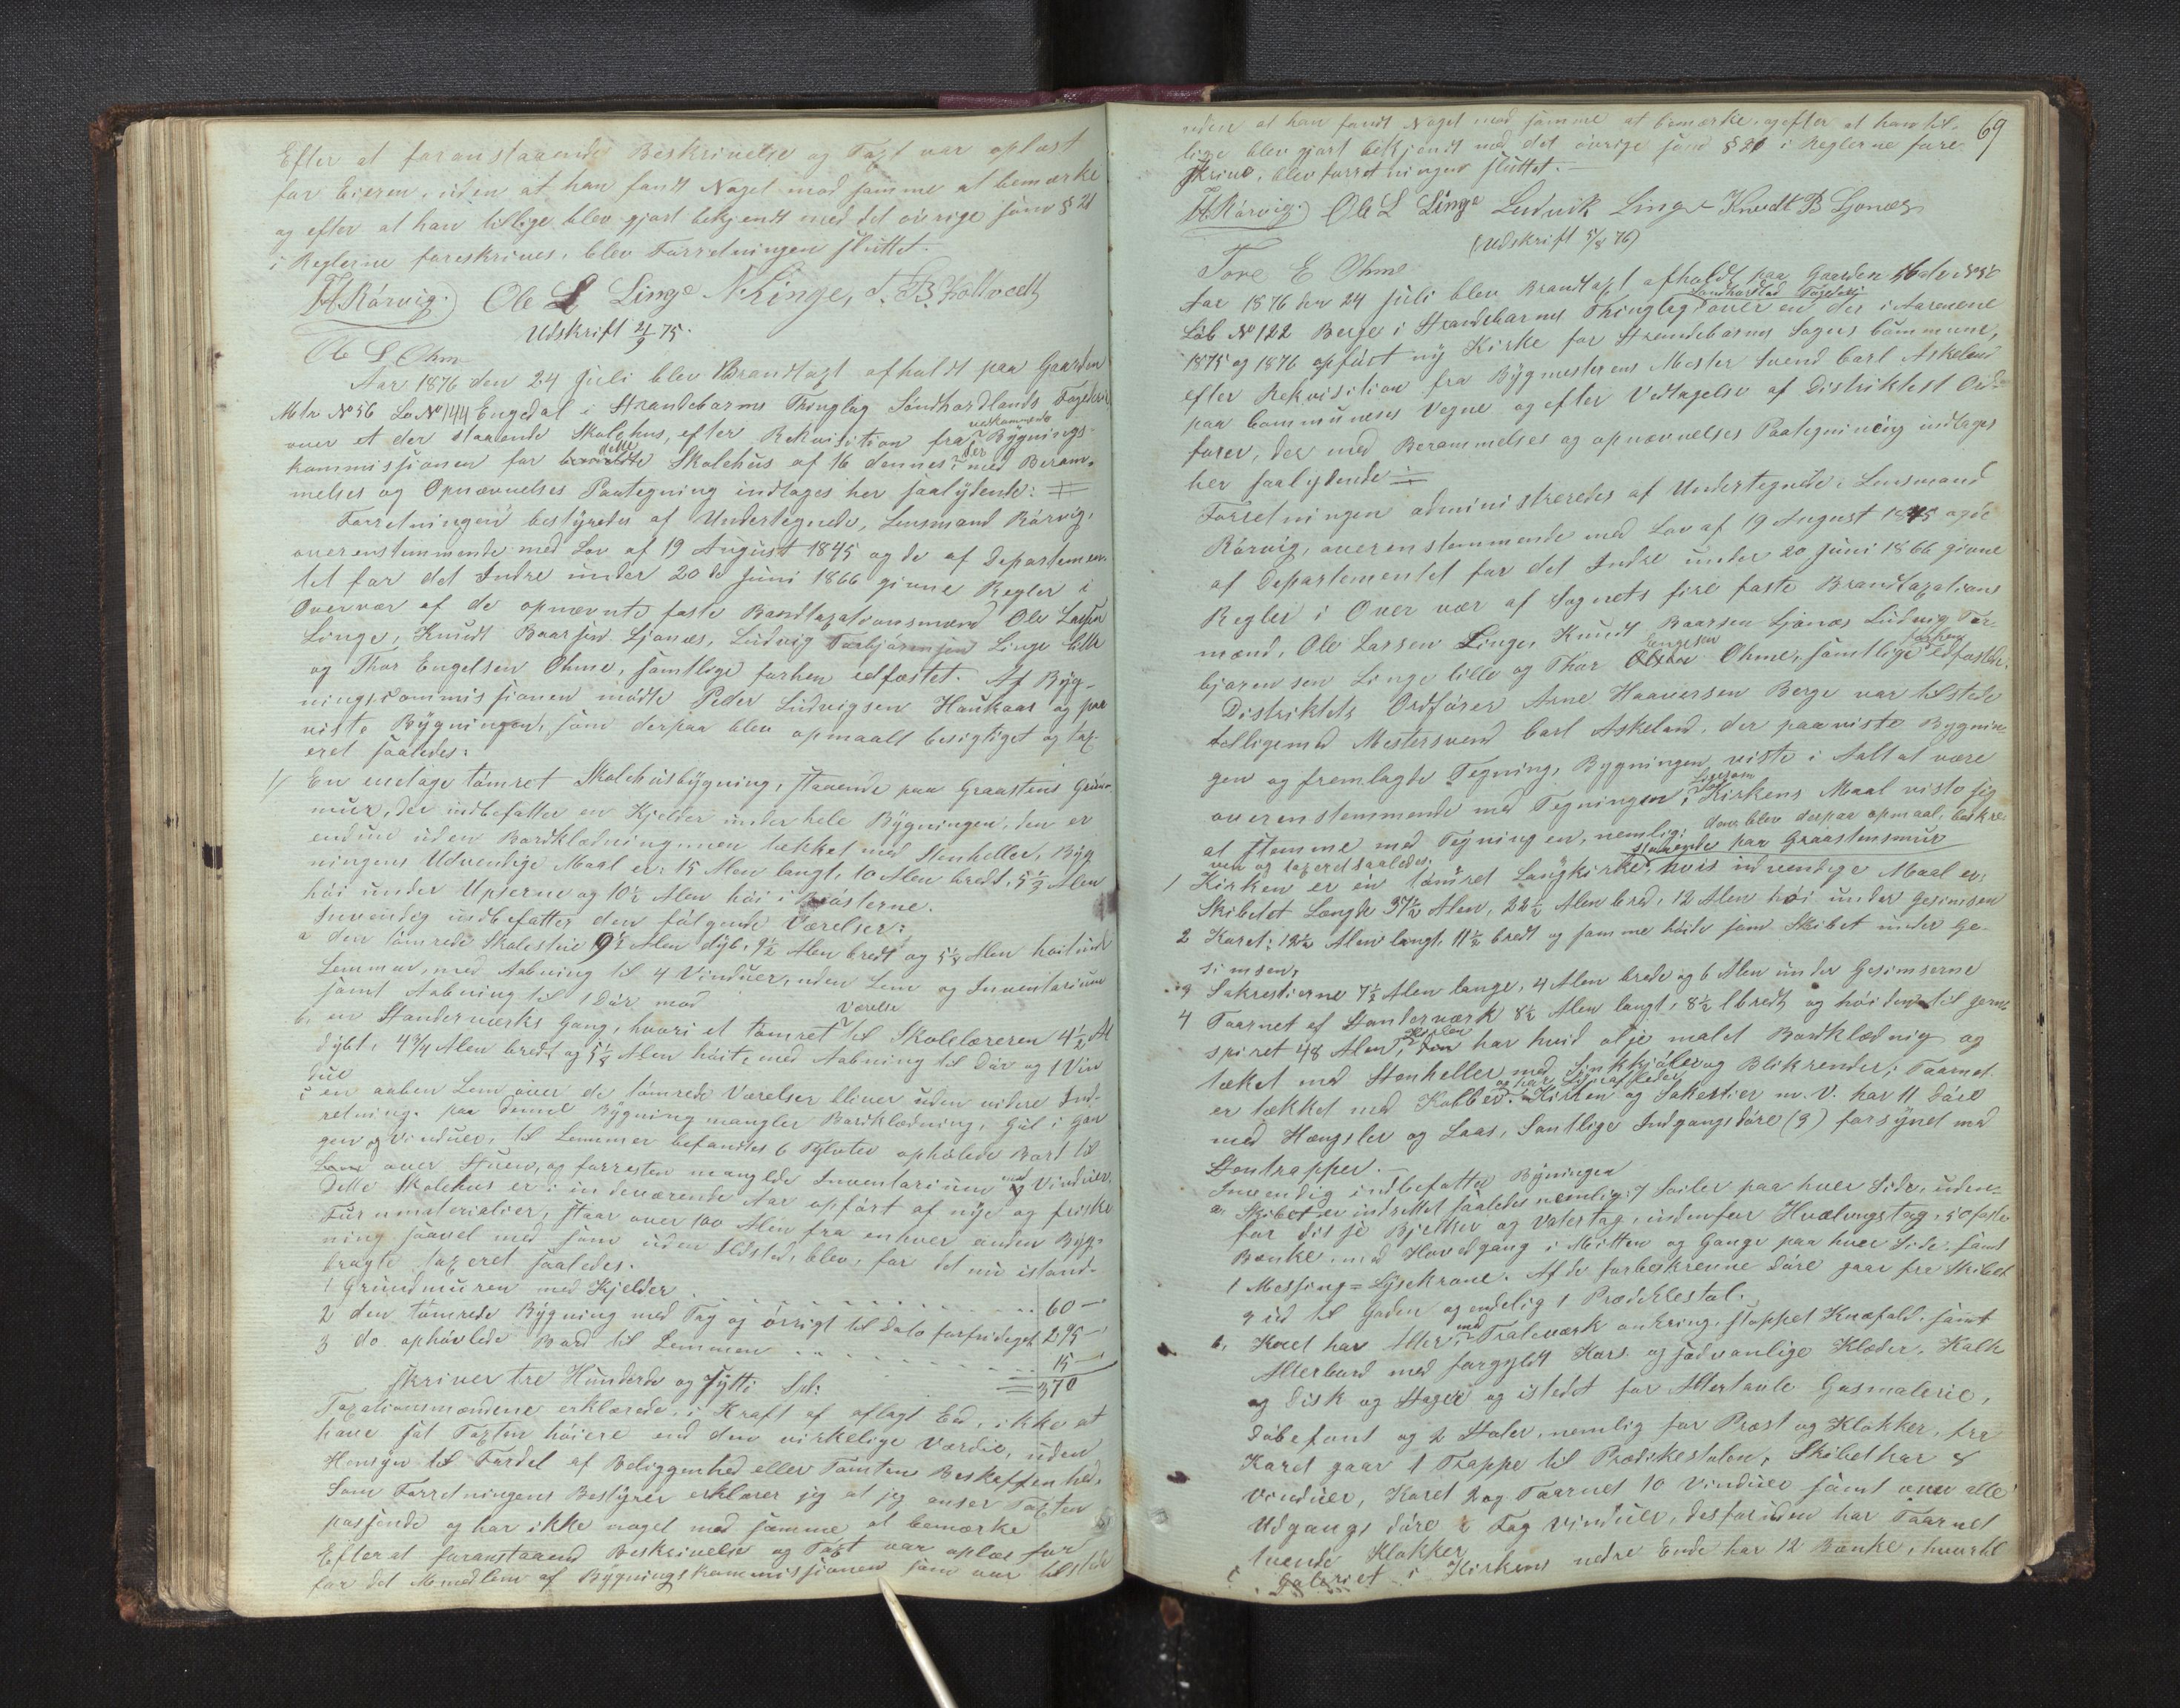 Efter at foranstaaende Beskrivelse og Taxt var oplæst
for Eieren, uden at han fandt Noget mod samme at bemærke
og efter at han tillige blev gjort bekjendt med det øvrige som § 21
i Reglerne foreskrives, blev Forretningen sluttet.
H Rørvig. Ole L Linge N Linge,
Udskrift 2/9 75.
Ole L Ohm
Aar 1876 den 24 Juli blev Brandtaxt afholdt paa Gaarden
Mtr No 56 Lo No 144 Engedal i Strandebarms Thinglag Søndhordlands Fogderi
over et der staaende Skolehus, efter Rekvisition fra vedkommende Bygnings-
kommissionen for dette Skolehus af 16 dennes, der med Beram-
melses og Opnævnelses Paategning indtages her saalydende: #
Forretningen bestyredes af Undertegnede, Lensmand Rørvig,
overenstemmende med Lov af 19 August 1845 og de af Departemen-
tet for det Indre under 20de Juni 1866 givne Regler i
Overvær af de opnævnte faste Brandtaxationsmænd Ole Larsen
Linge, Knudt Baarsen Ljonæs, Ludvig Torbjørnsen Linge lille
og Thor Engelsen Ohme, samtlige forhen edfæstet. Af Byg-
ningscommissionen mødte Peder Ludvigsen Haukaas og paa
viste Bygningen, som derpaa blev opmaalt besigtiget og tax
eret saaledes:
1/ En enetage tømret Skolehusbygning, staaende paa Graastens Grund-
mur, der indbefatter en Kjelder under hele Bygningen, den er
endnu uden Bordklædning, men tækket med Stenheller, Byg
ningens Udvendige Maal er: 15 Alen langt, 10 Alen bredt, 5½ Alen
høi under Upserne og 10½ Alen høi i Røsterne.
Invendig indbefatter den følgende Værelser:
a den tømrede Skolestue 9½ Alen dyb, 9½ Alen bredt og 5¼ Alen høit under
Lemmen, med Aabning til 4 Vinduer, uden Lem og Inventarium
samt Aabning til 1 Dør mod
b, en Standerværks Gang, hvori et tømret Værelse til Skolelæreren 4½ Al
dybt, 4¾ Alen bredt og 5¼ Alen høit, med Aabning til Dør og 1 Vin
due
c en aaben Lem over de tømrede Værelser bliver uden videre Ind-
retning. paa denne Bygning mangler Bordklædning, Gul i Gan
gen og Vinduer, til Lemmer befandtes 6 Tylvter ophøvlede Bord til
Lem over Stuen, og forresten manglede Inventarium med Vinduer.
Dette Skolehus er i indeværende Aar opført af nye og friske
Furumaterialier, staar over 100 Alen fra enhver anden Byg-
ning saavel med som uden Ildsted, blev, for det nu istand-
bragte taxeret saaledes.
1 Grundmuren med Kjelder 60 —
2 den tømrede Bygning med Tag og øvrigt til Dato forfærdiget 295 —
3 do ophøvlede Bord til Lemmen 15 —
skriver tre Hundrede og Sytti Spd: = 370
Taxationsmændene erklærede, i Kraft af aflagt Ed, ikke at
have sat Taxten høiere end den virkelige Værdie, uden
Hensyn til Fordel af Beliggenhed eller Tomtens Beskaffenhed,
Som Forretningens Bestyrer erklærer jeg at jeg anser Taxten
passende og har ikke noget mod samme at bemærke
Efterat foranstaaende Beskrivelse og Taxt var oplæst for
for det Medlem af Bygningskommissionen som var tilstede
69
uden at han fandt Noget mod samme at bemærke, og efter at han til-
lige blev gjort bekjendt med det øvrige som § 21 i Reglerne fore
skrives, blev forretningen sluttet.—
H Rørvig. Ole L Linge Ludvik Linge Knudt B Ljonæs
(Udskrift 5/8 76)
Tore E Ohme
Aar 1876 den 24 Juli blev Brandtaxt afholdt paa Gaarden Matr No 51
Løb No 122 Berge i Strandebarms Thinglag Søndhordland Fogderi over en der i Aarene
1875 og 1876 opført ny Kirke for Strandebarms Sogns Commune,
efter Rekvisition fra Bygmesterens Mester Svend Carl Askeland
paa Communens Vegne og efter Vedtagelse af Distriktets Ord-
fører, der med Berammelses og opnævnelses Paategning indtages
her saalydende ÷
Forretningen administreredes af Undertegnede Lensmand
Rørvig, overenstemmende med Lov af 19 August 1845 og de
af Departementet for det Indre under 20 Juni 1866 givne
Regler i Overvær af Sognets fire faste Brandtaxations
mænd, Ole Larsen Linge, Knudt Baarsen Ljonæs Ludvig Tor-
bjørnsen Linge lille og Thor Engelsen Ohme, samtlige forhen edfæstede.
Distriktets Ordfører Arne Haaversen Berge var tilstede
tilligemed Mestersvend Carl Askeland, der paaviste Bygnin
gen og fremlagde Tegning, Bygningen viste i Aalt at være
overenstemmende med Tegningen, Ligesom Kirkens Maal viste sig
at stemme med Tegningen, nemlig: den blev derpaa opmaal, beskre-
ven og taxeret saaledes. staaende paa Graastensmur
1 Kirken er en tømret Langkirke, hvis indvendige Maal er:
Skibetet Længde 37½ Alen, 22½ Alen bred, 12 Alen høi under Gesimsen
2 Koret: 12½ Alen langt, 11½ bredt og samme høide som Skibet under Ge-
simsen,
3 Sakrestierne 7½ Alen lange, 4 Alen brede og 6 Alen under Gesimserne
4 Taarnet af Standerværk 8½ Alen langt, 8½ bredt og høiden til
spiret 48 Alen, Kirken har hvid olje malet Bordklædnig og
tæket med Stenheller med Sinkkjøler og Blikrender, Taarnet
er tækket med Kobber og har Lynafleder. Kirken og Sakestier m. V. har 11 Døre
med Hængsler og Laas, Samtlige Indgangsdøre (3) forsynet med
Stentrapper.—
Invendig indbefatter Bygningen
a, Skibet er indrettet saaledes nemlig: 7 Søiler paa hver Side, uden-
for disse Bjelker og Vatertag, indenfor Hvælvingstag, 50 faste
Bænke, med Hovedgang i Mitten og Gange paa hver Side. samt
1 Messing=Lysekrone. Af de forbeskrevne Døre gaar fra Skibet
3 ud til Gaden og endelig 1 Prædikestol.
b, Koret har Alter med Tralleværk omkring, stoppet Knæfald, samt
Alterbord med forgyldt Kors og sædvanlige Klæder, Kalk
og Disk og Stager og istedet for Altertavle Gasmalerie,
Døbefont og 2 Stoler, nemlig for Præst og Klokker, fra
Koret gaar 1 Trappe til Prædikestolen, Skibet har 8
Vinduer, Koret 2 og Taarnet 10 Vinduer samt over alle
Udgangs døre 2 Fag vinduer, desforuden har Taarnet
tvende Klokker
c, Galeriet i Kirkens nedre Ende har 12 Bænke, hvortil